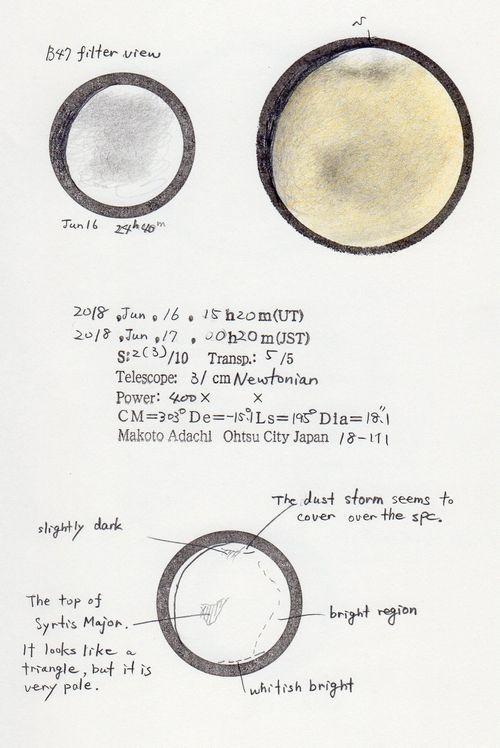 B47 filter view
N
Jun 16 24h40m
2018, Jun, 16, 15h20m(UT)
2018, Jun, 17, 00h20m(JST)
S:2(3)/10 Transp.: 5/5
Telescope: 31 cm Newtonian
Power: 400× ×
CM=303° De=-15.1 Ls=195° Dia=18".1
Makoto Adachi Ohtsu City Japan 18-171
The dust storm seems to
cover over the spc.
slightly dark
The top of
Syrtis Major.
It looks like a
triangle, but it is
very pale.
bright region
whitish bright